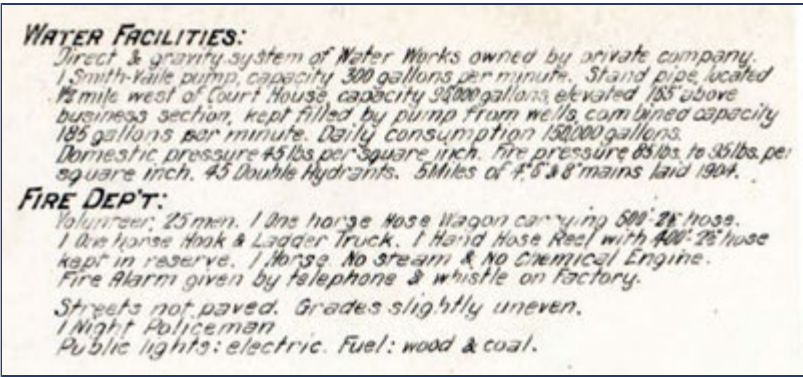 WATER FACILITIES:
Direct & gravity system of Water Works owned by private company.
1 Smith-Vaile pump, capacity 300 gallons per minute. Stand pipe, located
1/2 mile west of Court House, capacity 95,000 gallons, elevated 165' above
business section, kept filled by pump from wells, combined capacity
185 gallons per minute. Daily consumption 150,000 gallons.
Domestic pressure 45 lbs. per square inch. Fire pressure 85 lbs. to 95 lbs. per
square inch. 45 Double Hydrants. 5 Miles of 4", 6" & 8" mains laid 1904.
FIRE DEP'T:
Volunteer; 25 men. 1 One horse Hose Wagon carrying 600'-2½" hose.
1 One horse Hook & Ladder Truck. 1 Hand Hose Reel with 400'-2½" hose
kept in reserve. 1 Horse. No steam & No Chemical Engine.
Fire Alarm given by telephone & whistle on Factory.
Streets not paved. Grades slightly uneven.
1 Night Policeman
Public lights: electric. Fuel: wood & coal.